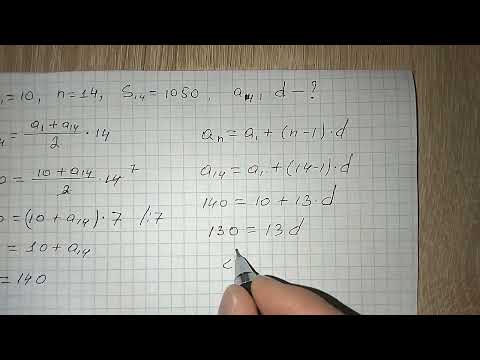 ₁=10, n=14, S₁₄=1050, a₁₄, d-?
₄ = (a₁+a₁₄)/2 · 14
0 = (10+a₁₄)/2 · 14 7
0 = (10+a₁₄)·7 /:7
= 10+a₁₄
= 140
aₙ = a₁+(n-1)·d
a₁₄ = a₁+(14-1)·d
140 = 10 + 13·d
130 = 13·d